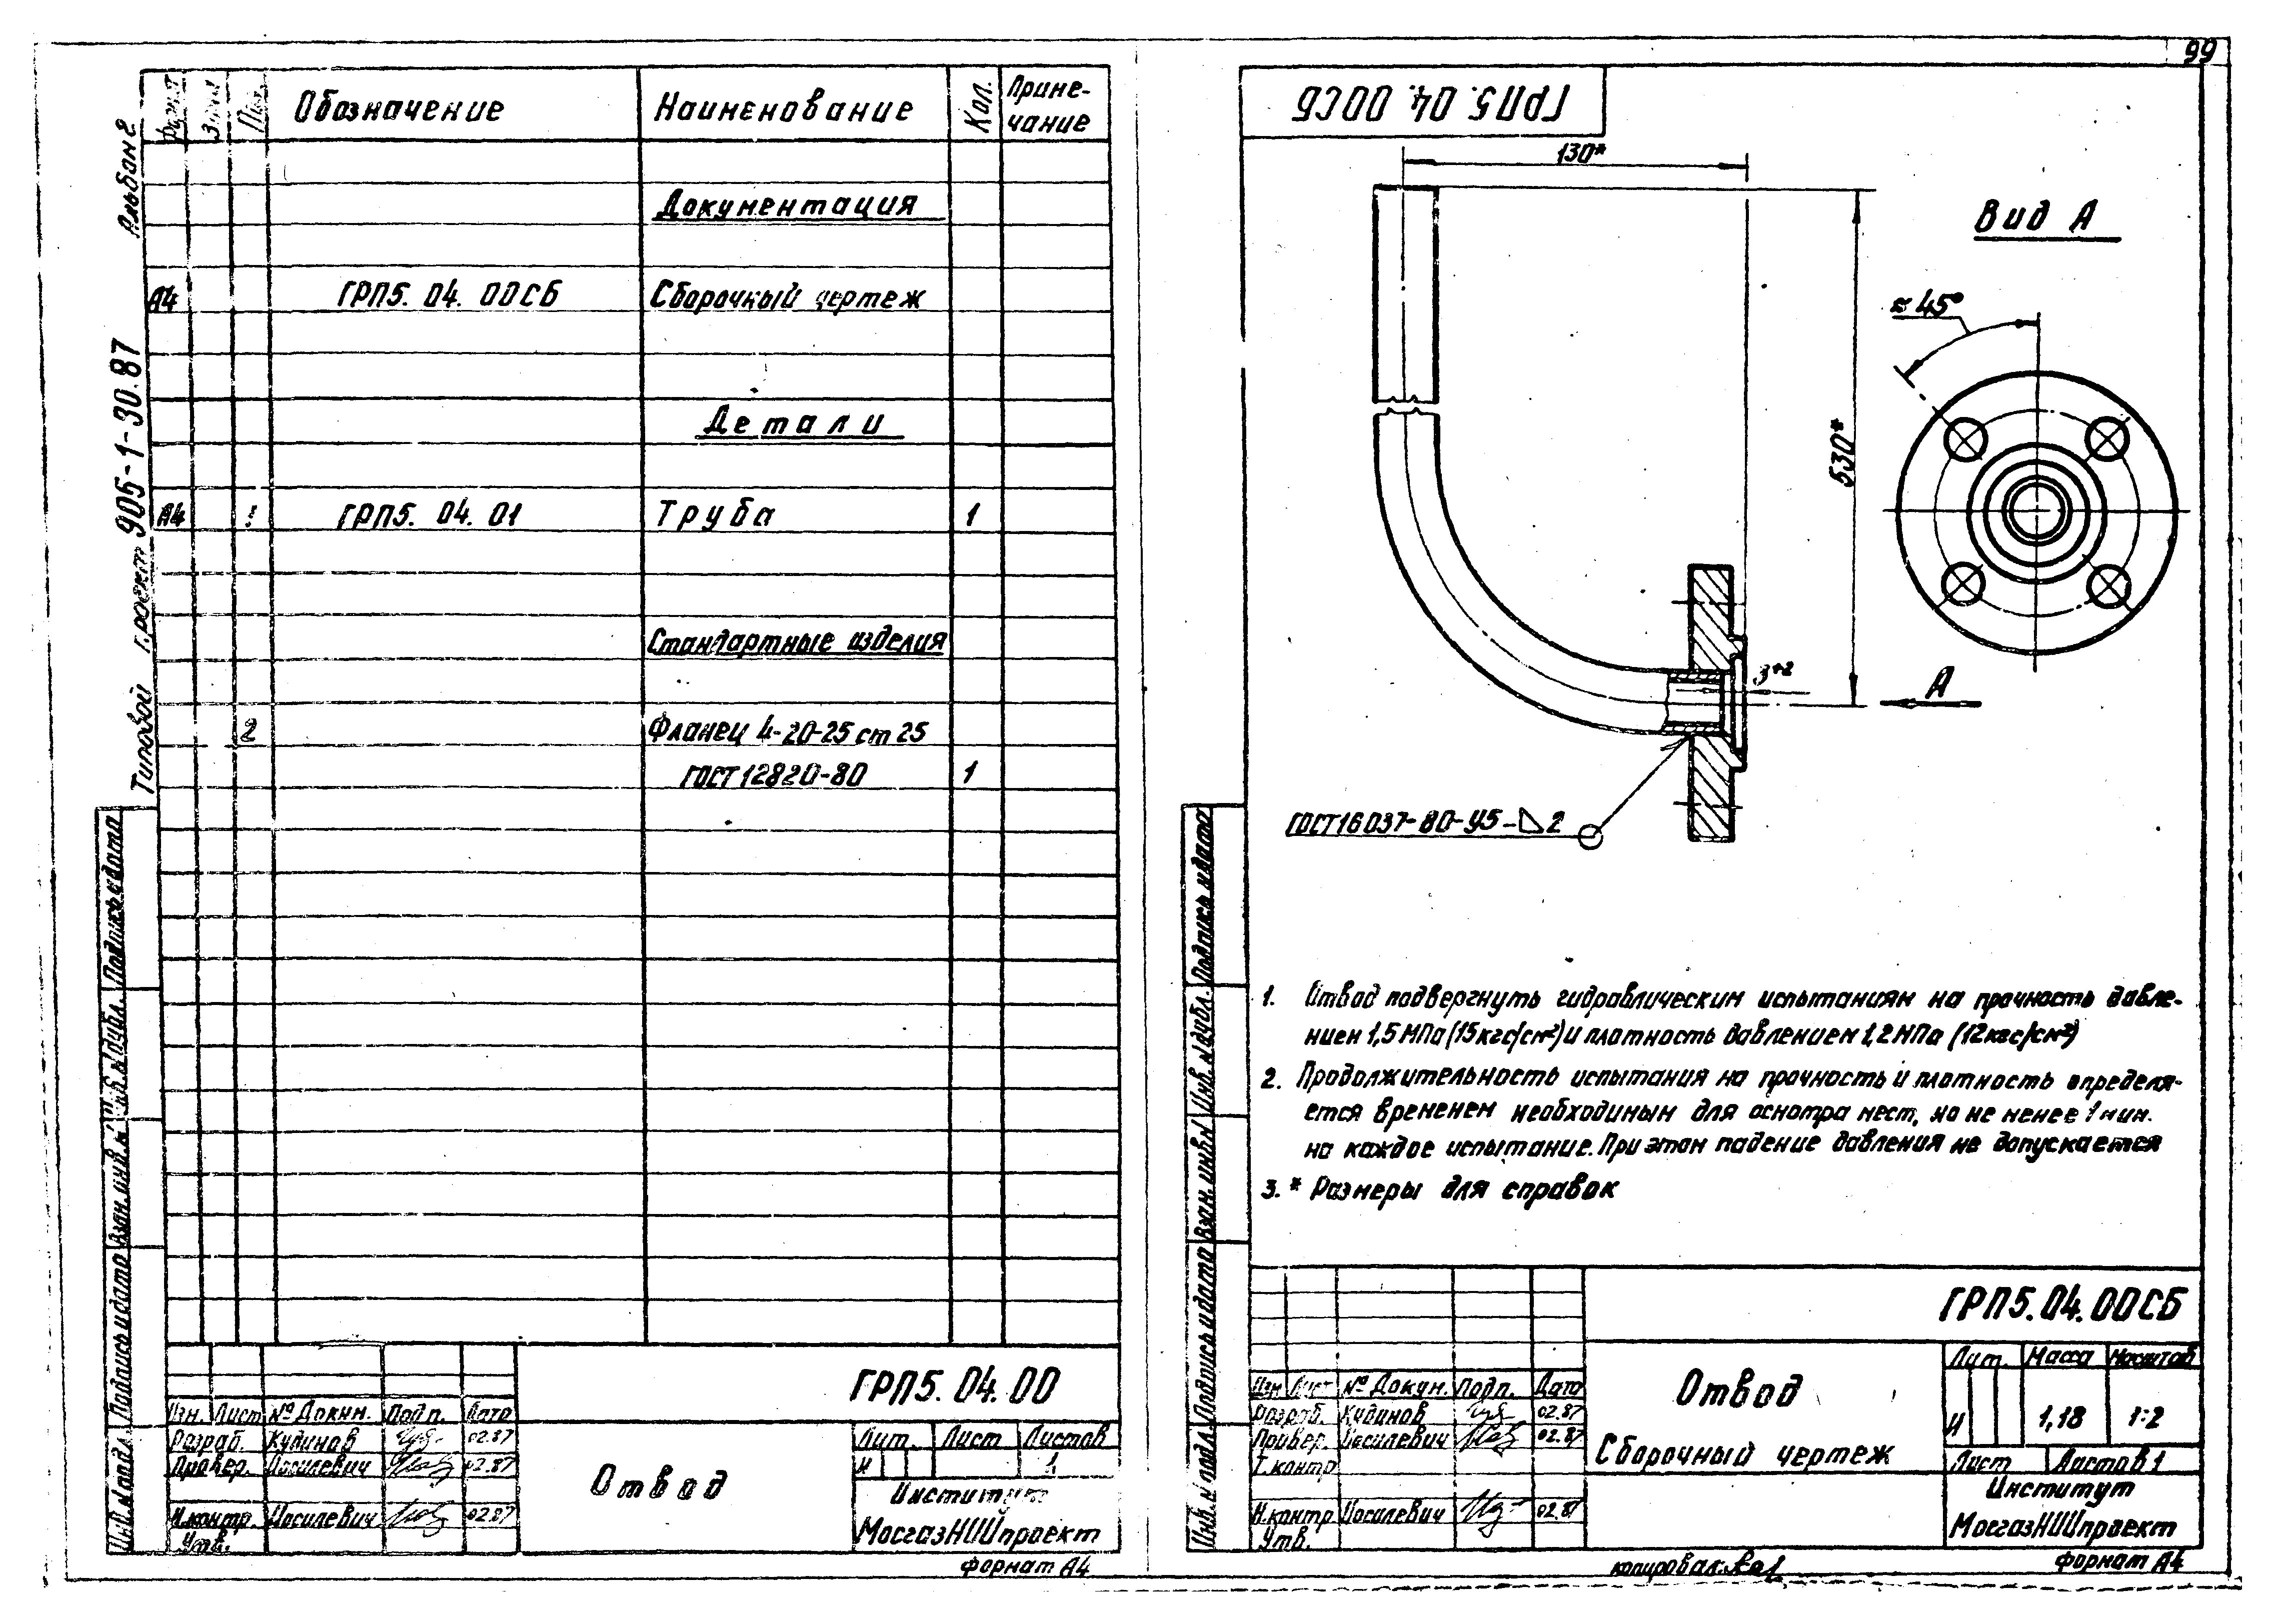 99
Альбом 2
Типовой проект 905-1-30.87
Формат
Зона
Поз.
Обозначение
Наименование
Кол.
Приме-
чание
Документация
А4 ГРП5. 04. 00СБ Сборочный чертеж
Детали
А4 1 ГРП5. 04. 01 Труба 1
Стандартные изделия
2 Фланец 4-20-25 ст 25
ГОСТ 12820-80 1
Подпись и дата
Инв. N дубл.
Взам. инв. N
Подпись и дата
Инв. N подл.
ГРП5. 04. 00
Изм. Лист № Докум. Подп. Дата
Разраб. Кудинов 02.87
Провер. Иосилевич 02.87
Н.контр. Иосилевич 02.87
Утв.
Отвод
Лит. Лист Листов
И 1
Институт
МосгазНИИпроект
формат А4
ГРП5. 04. 00СБ
130*
Вид А
≈45°
530*
3⁺²
А
ГОСТ 16037-80-У5-◺2
1. Отвод подвергнуть гидравлическим испытаниям на прочность давле-
нием 1,5 МПа (15 кгс/см²) и плотность давлением 1,2 МПа (12 кгс/см²)
2. Продолжительность испытания на прочность и плотность определя-
ется временем необходимым для осмотра мест, но не менее 1 мин.
на каждое испытание. При этом падение давления не допускается
3. * Размеры для справок
Подпись и дата
Инв. N дубл.
Взам. инв. N
Подпись и дата
Инв. N подл.
ГРП5. 04. 00СБ
Изм Лист № Докум. Подп. Дата
Разраб. Кудинов 02.87
Провер. Иосилевич 02.87
Т.контр
Н.контр Иосилевич 02.87
Утв.
Отвод
Сборочный чертеж
Лит. Масса Масштаб
И 1,18 1:2
Лист Листов 1
Институт
МосгазНИИпроект
копировал
формат А4